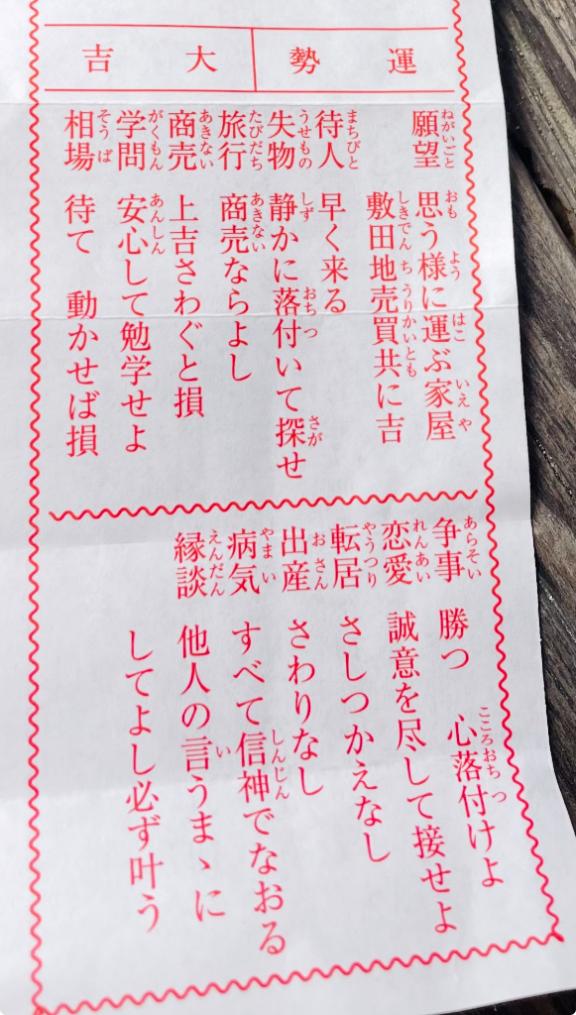 運勢 大吉
願望 思う様に運ぶ家屋
敷田地売買共に吉
待人 早く来る
失物 静かに落付いて探せ
旅行 商売ならよし
商売 上吉さわぐと損
学問 安心して勉学せよ
相場 待て 動かせば損
争事 勝つ 心落付けよ
恋愛 誠意を尽して接せよ
転居 さしつかえなし
出産 さわりなし
病気 すべて信神でなおる
縁談 他人の言うまゝに
してよし必ず叶う